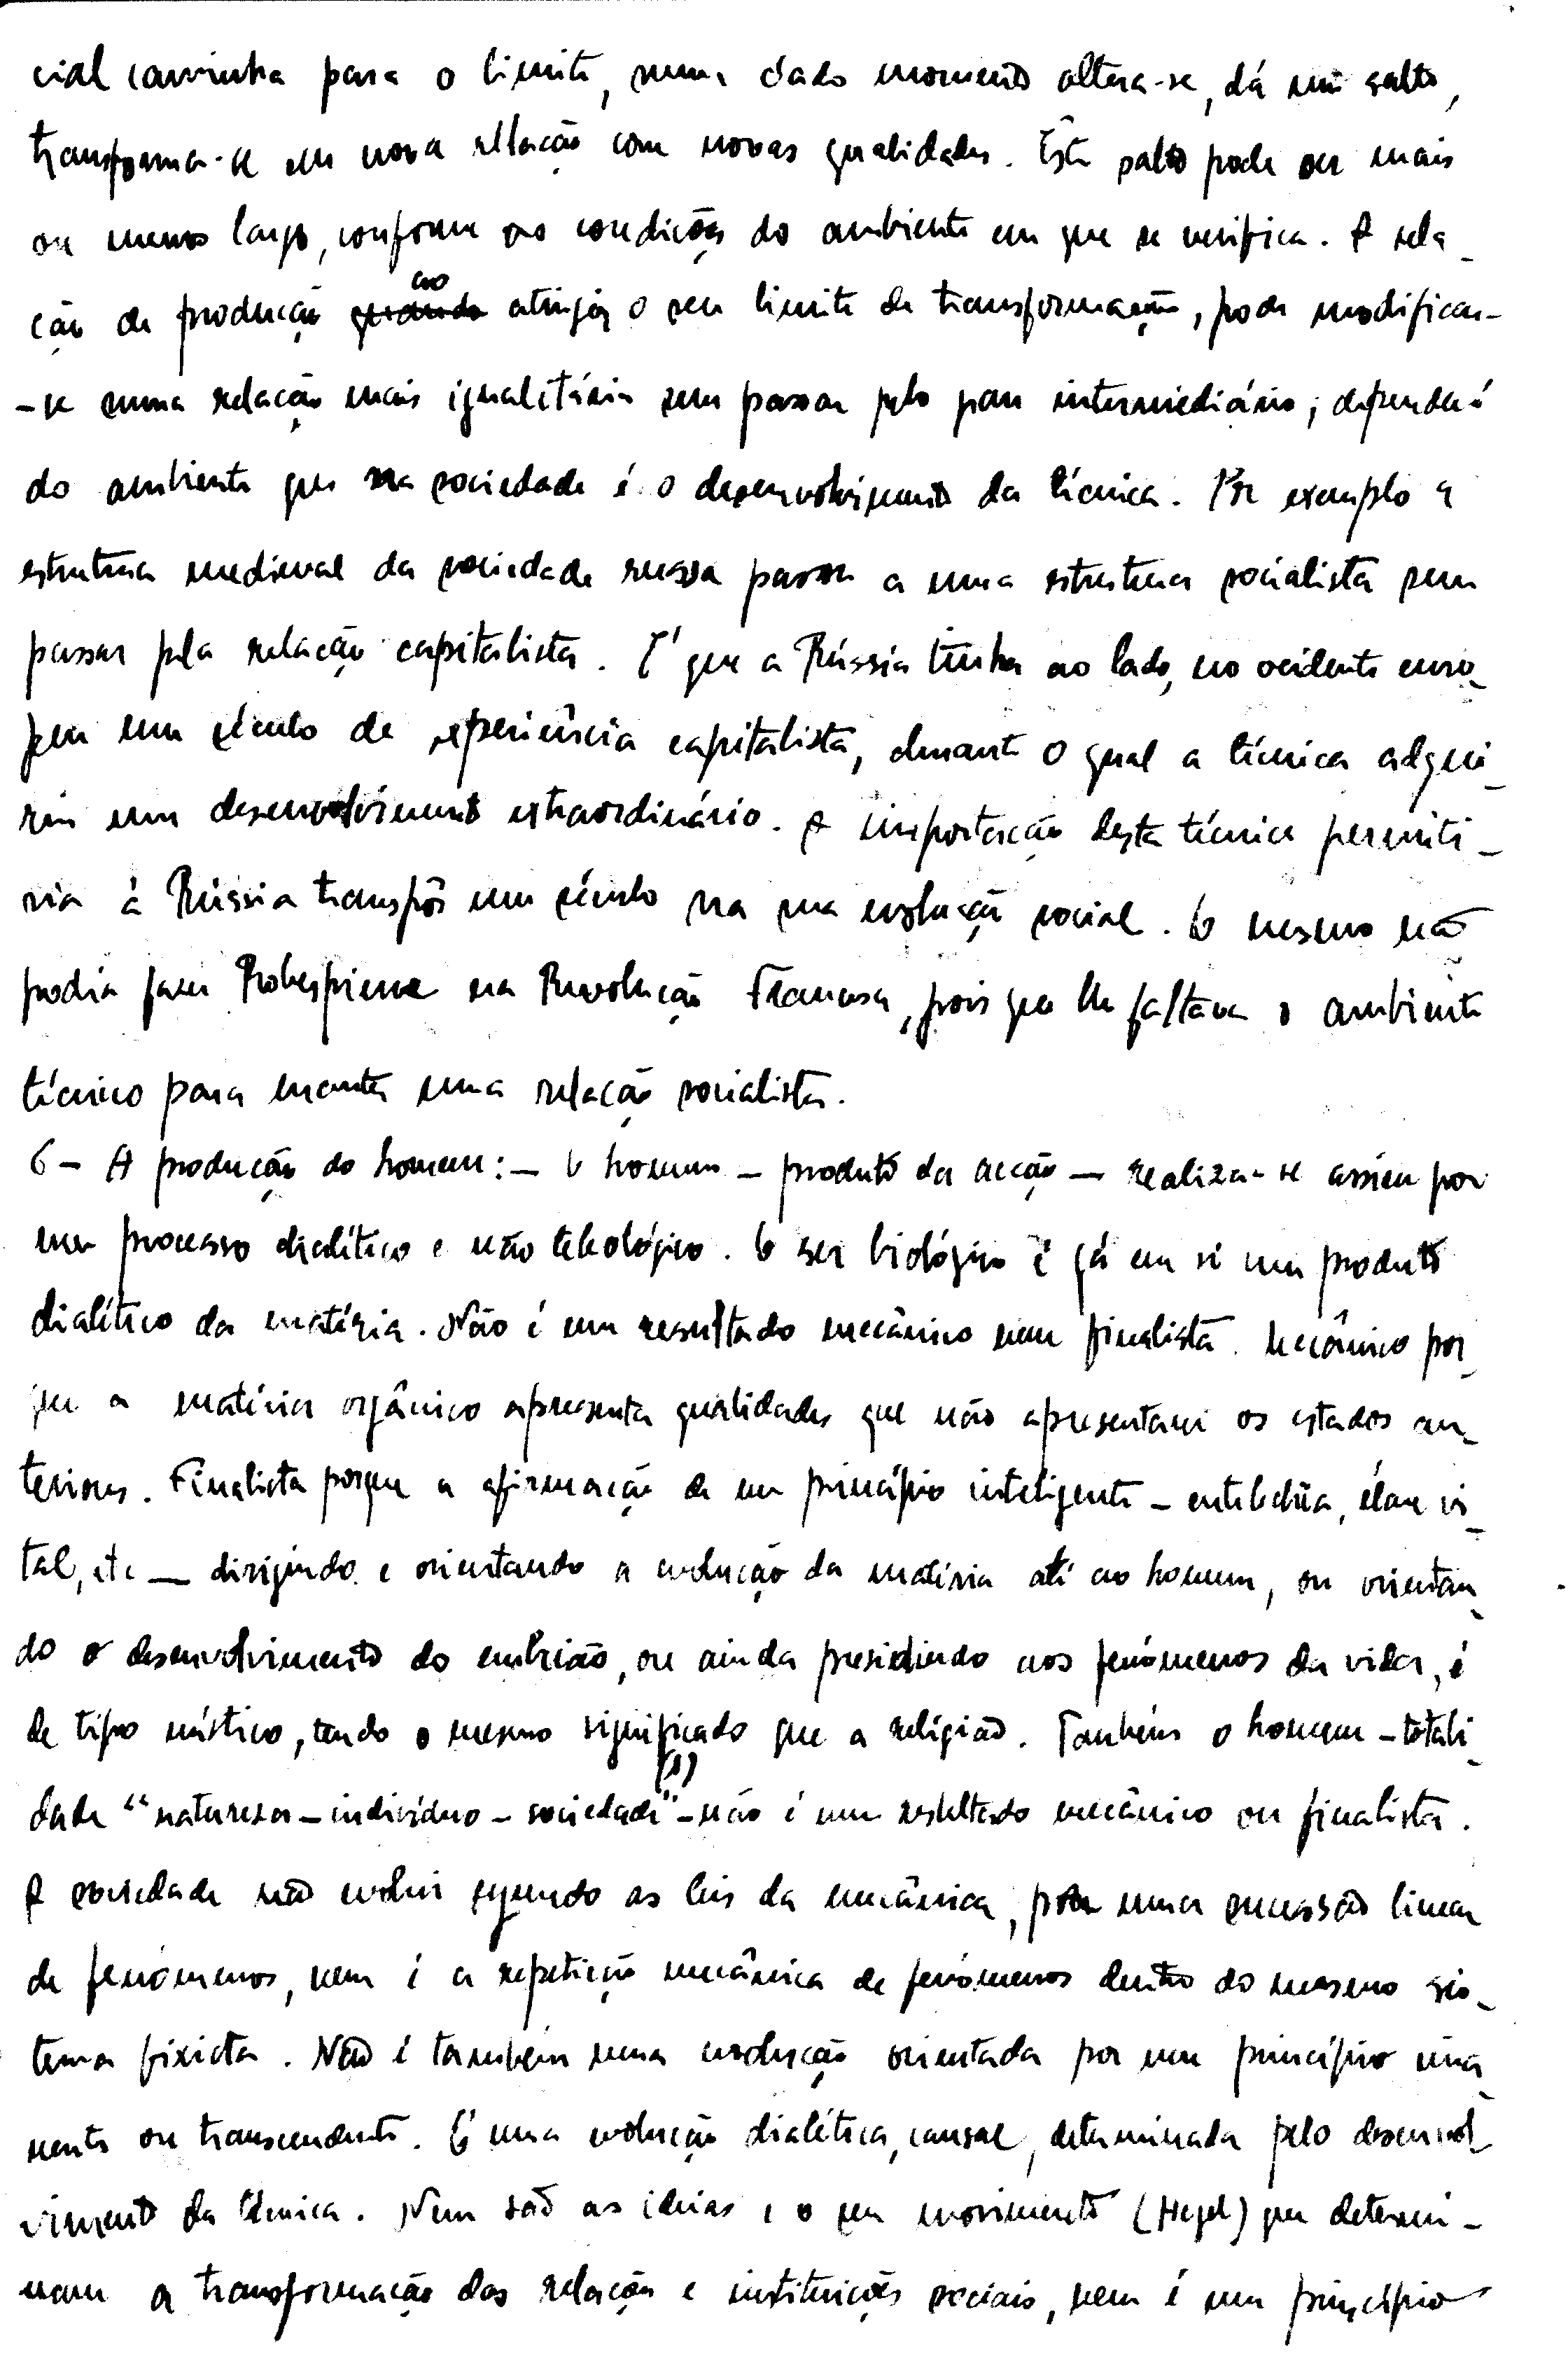 cial caminha para o limite, num dado momento altera-se, dá um salto,
transforma-se em nova relação com novas qualidades. Êste salto pode ser mais
ou menos largo, conforme as condições do ambiente em que se verifica. A rela_
ção de produção ~~quando~~ ao atingir o seu limite de transformação, pode modificar-
-se numa relação mais igualitária sem passar pelo grau intermediário; dependerá
do ambiente que na sociedade é o desenvolvimento da técnica. Por exemplo a
estrutura medieval da sociedade russa passou a uma estrutura socialista sem
passar pela relação capitalista. É que a Rússia tinha ao lado, no ocidente euro_
peu um século de experiência capitalista, durante o qual a técnica adqui_
riu um desenvolvimento extraordinário. A importação desta técnica permiti_
ria à Rússia transpôr um século na sua evolução social. O mesmo não
podia fazer Robespierre na Revolução Francesa, pois que lhe faltava o ambiente
técnico para manter uma relação socialista.
6 - A produção do homem: - O homem - produto da acção - realiza-se assim por
um processo dialético e não teleológico. O ser biológico é já em si um produto
dialético da matéria. Não é um resultado mecânico nem finalista. Mecânico por_
que a matéria orgânico apresenta qualidades que não apresentam os estados an_
teriores. Finalista porque a afirmação de um princípio inteligente - enteléchia, élan vi_
tal, etc - dirigindo e orientando a evolução da matéria até ao homem, ou orientan_
do o desenvolvimento do embrião, ou ainda presidindo aos fenómenos da vida, é
de tipo místico, tendo o mesmo significado que a religião. Também o homem - totali_
dade "natureza - indivíduo - sociedade" (1) - não é um resultado mecânico ou finalista.
A sociedade não evolui segundo as leis da mecânica, por uma sucessão linear
de fenómenos, nem é a repetição mecânica de fenómenos dentro do mesmo sis_
tema fixista. Não é também uma evolução orientada por um princípio ima_
nente ou transcendente. É uma evolução dialética, causal, determinada pelo desenvol_
vimento da técnica. Nem são as ideias e o seu movimento (Hegel) que determi_
nam a transformação das relação e instituições sociais, nem é um princípio